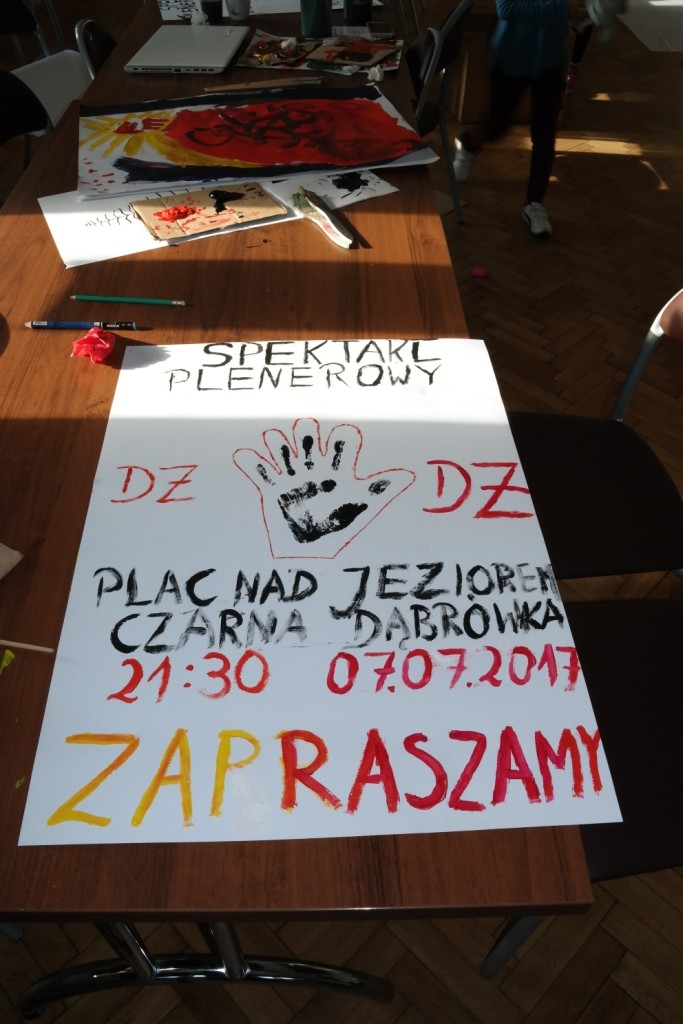 SPEKTAKL
PLENEROWY
DZ DŻ
PLAC NAD JEZIOREM
CZARNA DĄBRÓWKA
21:30 07.07.2017
ZAPRASZAMY